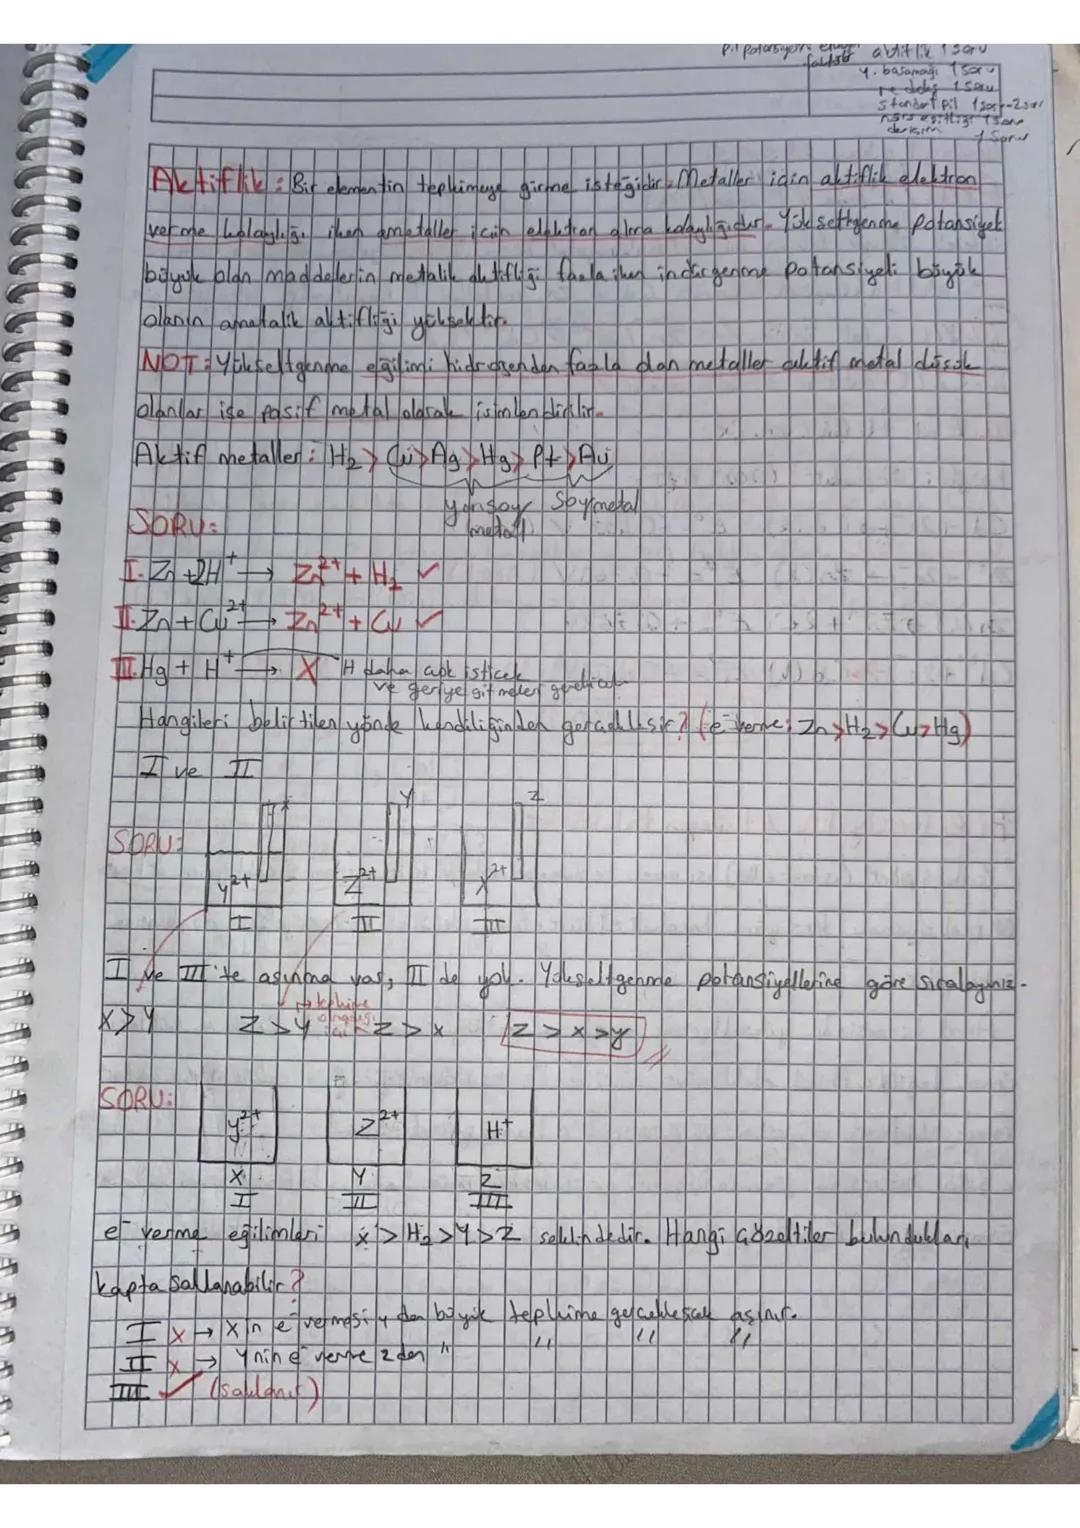 aktiflik 1 soru
y. basamağı 1 soru
redoks 1 soru
standart pil 1 soru-2 soru
1 soru
derişim 1 soru
Aktiflik: Bir elementin tepkimeye girme isteğidir. Metaller için aktiflik elektron
verme kolaylığı iken ametaller için elektron alma kolaylığıdır. Yükseltgenme potansiyeli
büyük olan maddelerin metalik aktifliği fazla iken indirgenme potansiyeli büyük
olanın ametalik aktifliği yüksektir.
NOT: Yükseltgenme eğilimi hidrojenden fazla olan metaller aktif metal düşük
olanlar ise pasif metal olarak isimlendirilir.
Aktif metaller: H₂ > Cu > Ag > Hg > Pt > Au
yarısoy metal Soymetal
SORU:
I. Zn + 2H⁺ → Zn²⁺ + H₂ ✓
II. Zn + Cu²⁺ → Zn²⁺ + Cu ✓
III. Hg + H⁺ → X H daha çok isticek
ve geriye gitmeleri gerekicek
Hangileri belirtilen yönde kendiliğinden gerçekleşir? (e⁻ verme; Zn > H₂ > Cu > Hg)
I ve II
X Y Z
SORU:
Y²⁺ Z²⁺ X²⁺
I II III
I ve III'te aşınma var, II de yok. Yükseltgenme potansiyellerine göre sıralayınız.
X > Y Z > Y tepkime olmadığı için Z > X Z > X > Y
SORU:
Y²⁺ Z²⁺ H⁺
X Y Z
I II III
e⁻ verme eğilimleri X > H₂ > Y > Z şeklindedir. Hangi çözeltiler bulundukları
kapta saklanabilir?
I X → X in e⁻ vermesi y den büyük tepkime gerçekleşicek aşınır.
II X → Y nin e⁻ verme z den " " " "
III ✓ (saklanır)